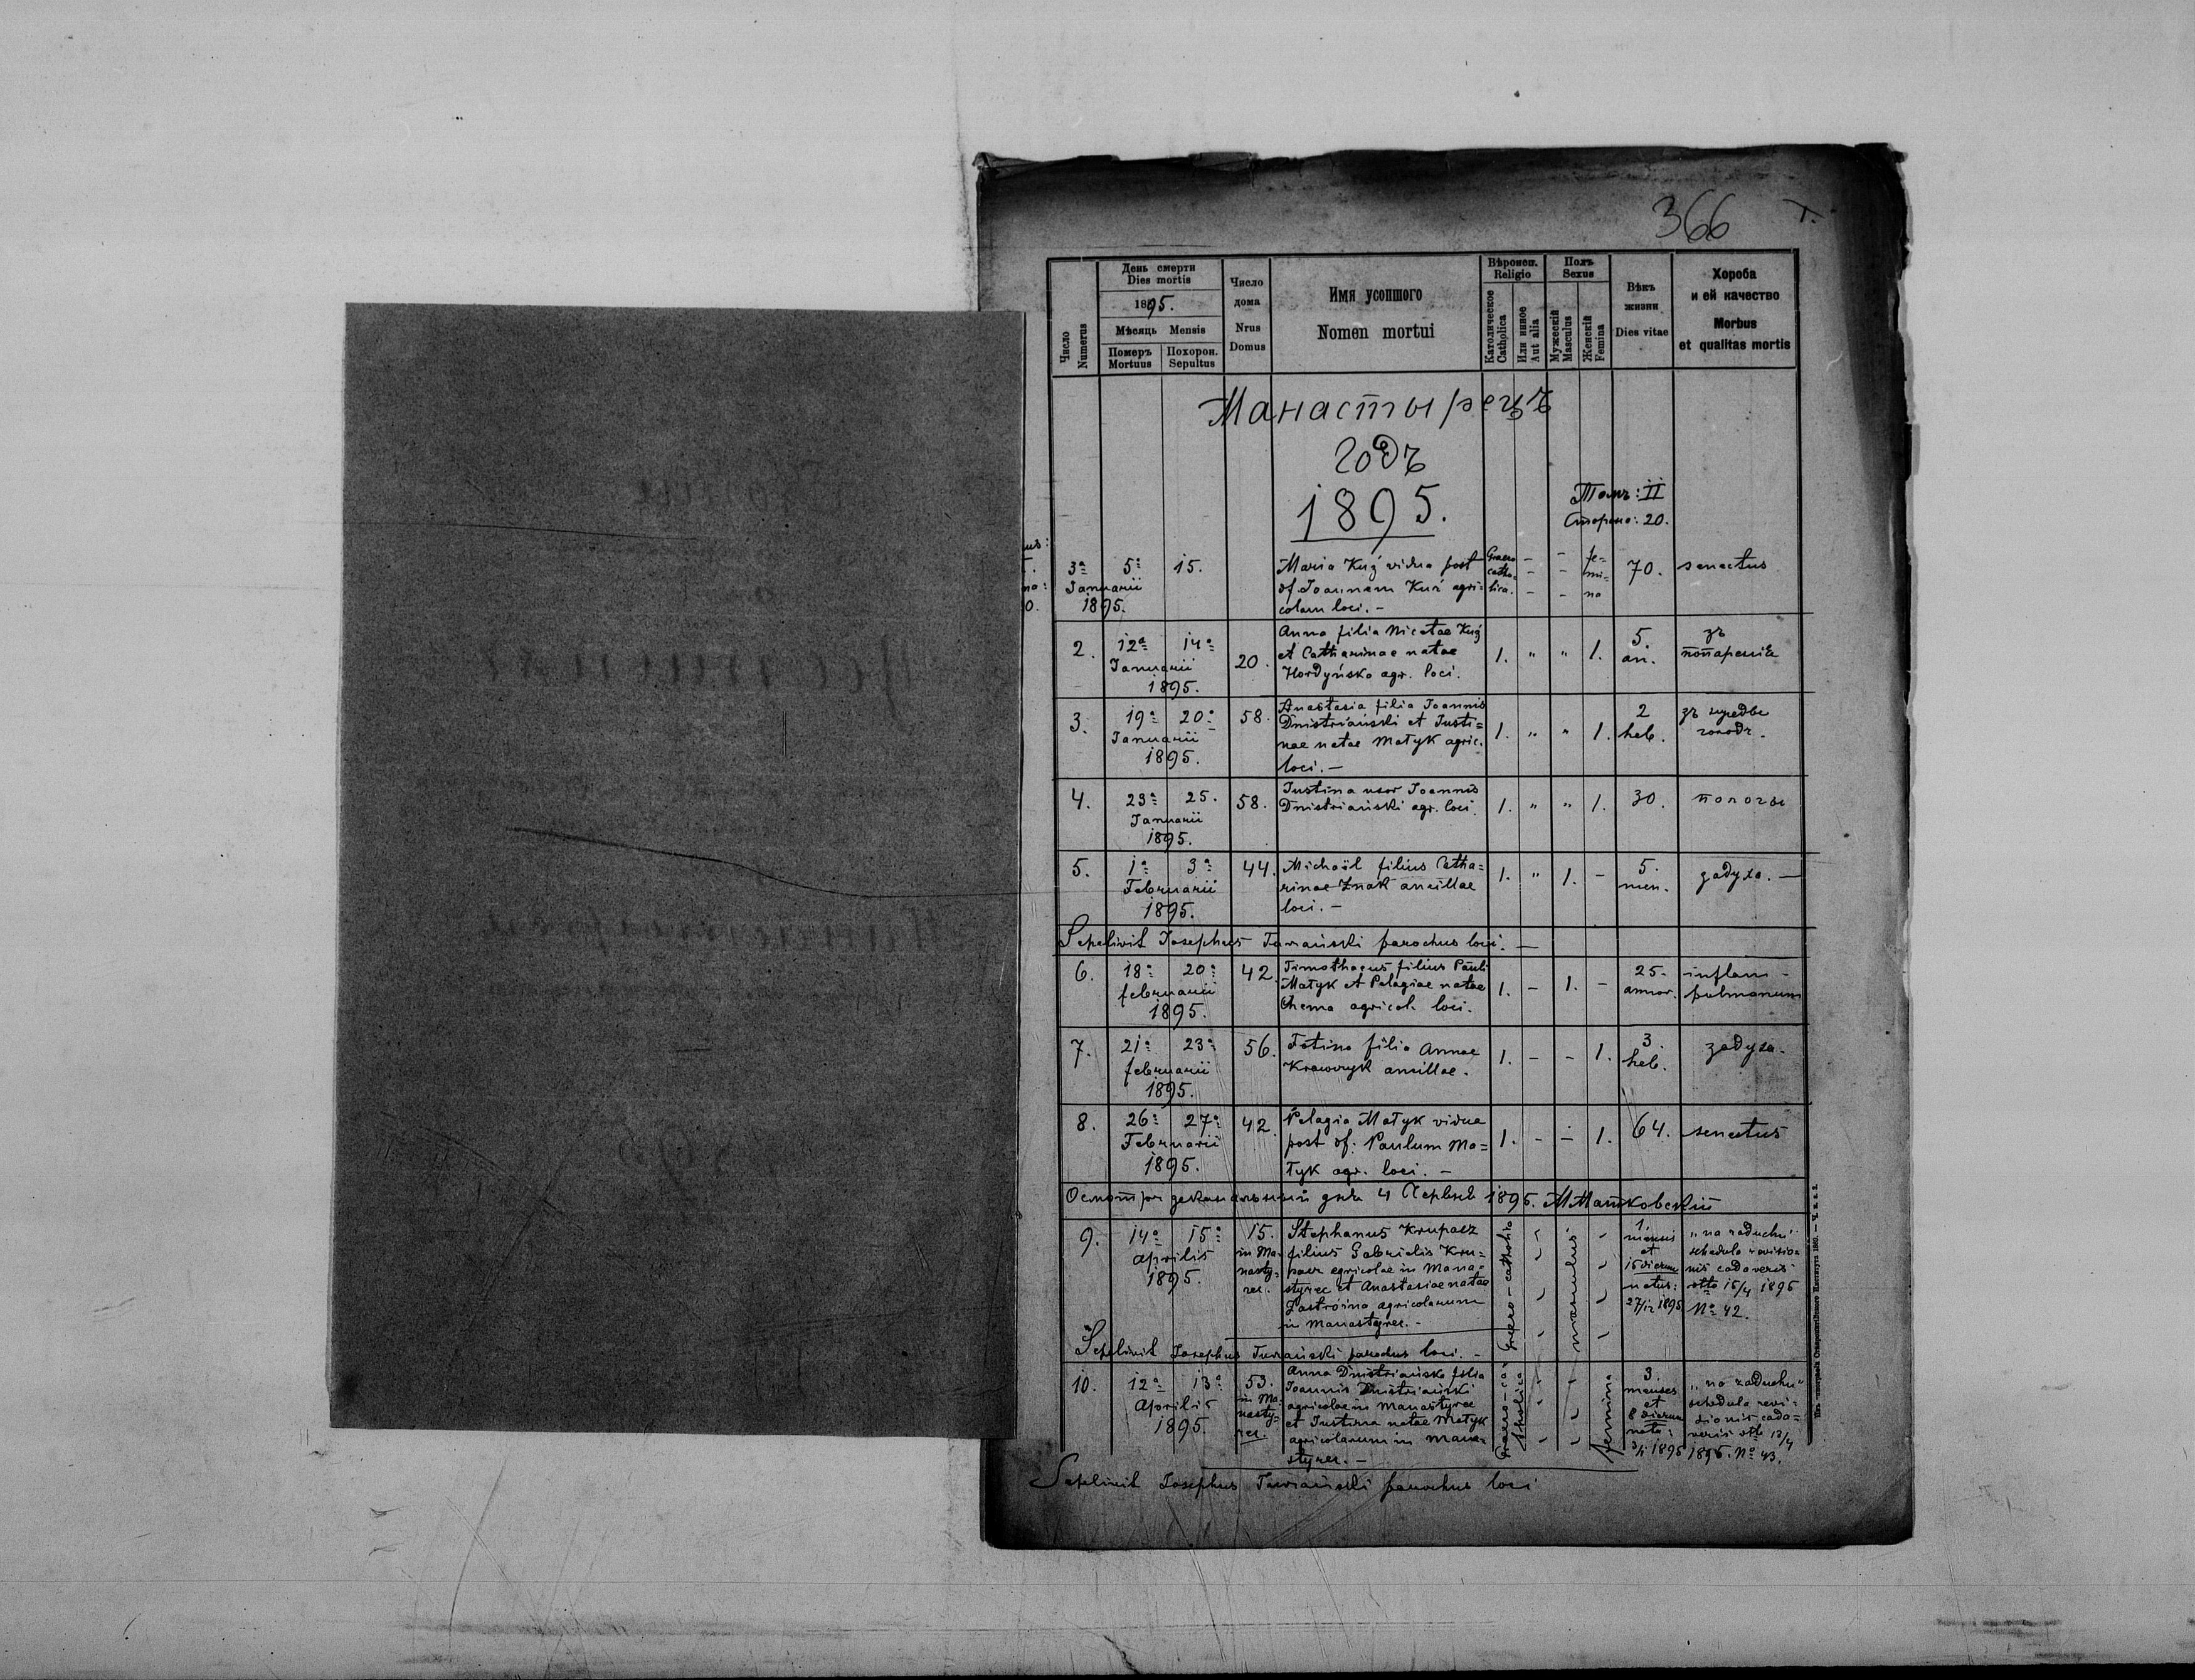 366
День смерти
Dies mortis
1895.
Мѣсяць Mensis
Померъ Похорон.
Mortuus Sepultus
Число
Numerus
Число
дома
Nrus
Domus
Имя усопшого
Nomen mortui
Вѣроисп.
Religio
Католическое
Catholica
Или инное
Aut alia
Полъ
Sexus
Мужескій
Masculus
Женскій
Femina
Вѣкъ
жизни
Dies vitae
Хороба
и ей качество
Morbus
et qualitas mortis
Манастырецъ
годъ
1895.
Томъ: II
Сторона: 20.
3а 5а 15.
Januarii
1895.
Maria Kuź vidua post
of Joannem Kuź agri=
colam loci. -
Graeco
catho=
lica.
fe=
mi=
na
70. senectus
2. 12а 14а
Januarii
1895.
20.
Anna filia Nicetae Kuź
et Catharinae natae
Hordyńska agr. loci.
1. " " 1.
5.
an.
зъ
3. 19а 20а
Januarii
1895.
58.
Anastasia filia Joannis
Dnistriański et Justi=
nae natae Matyk agric.
loci. —
1. " " 1.
2
heb.
4. 23а 25.
Januarii
1895.
58.
Justina uxor Joannis
Dnistriański agr. loci.
1. " " 1. 30. пологы
5. 1а 3а
Februarii
1895.
44.
Michaël filius Catha=
rinae Znak ancillae
loci. —
1. " 1. -
5.
men.
задуха. —
Sepelivit Josephus Turiański parochus loci. —
6. 18а 20а
februarii
1895.
42.
Timothaeus filius Pauli
Matyk et Pelagiae natae
Chema agricol. loci.
1. - 1. -
25.
annor.
inflam-
pulmonum
7. 21а 23а
februarii
1895.
56.
Fotina filia Annae
Krawczyk ancillae.
1. - - 1.
3.
heb.
задуха.
8. 26а 27а
Februarii
1895.
42.
Pelagia Matyk vidua
post of: Paulum Ma=
tyk agr. loci. —
1. - - 1. 64. senectus
Осмотръ деканальный дня 4 Червця 1895. М Матковскій
9. 14а 15а
aprilis
1895.
15.
in Ma=
nasty=
rec.
Stephanus Krupacz
filius Gabrielis Kru=
pacz agricolae in Mana=
styrec et Anastasiae natae
Zastróina agricolarum
in Manastyrec. -
Graeco-catholica
masculus
1.
mensis
et
15 dierum
natus:
1895
"na zaduchu"
schedula revisio
nis cadaveris
dtto 15/4 1895
No 42.
Sepelivit Josephus Turiański parochus loci. -
10. 12а 13а
Aprilis
1895.
53.
in Ma
nasty=
rec.
Anna Dnistriańska filia
Joannis Dnistriański
agricolae in Manastyrec
et Justina natae Matyk
agricolarum in Mana=
styrec. —
Graeco-ca=
tholica
femina
3.
menses
et
8 dierum
nata:
3/1 1895
"na zaduchu"
schedula revi=
sionis cada=
veris dtto 13/4
1895. No 43.
Sepelivit Josephus Turiański parochus loci